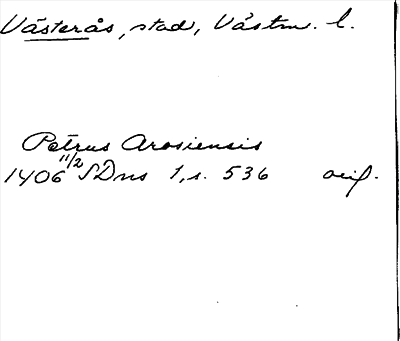 Västerås, stad, Västm. l.
Petrus Arosiensis
1406 11/2 SDns 1, s. 536 orig.